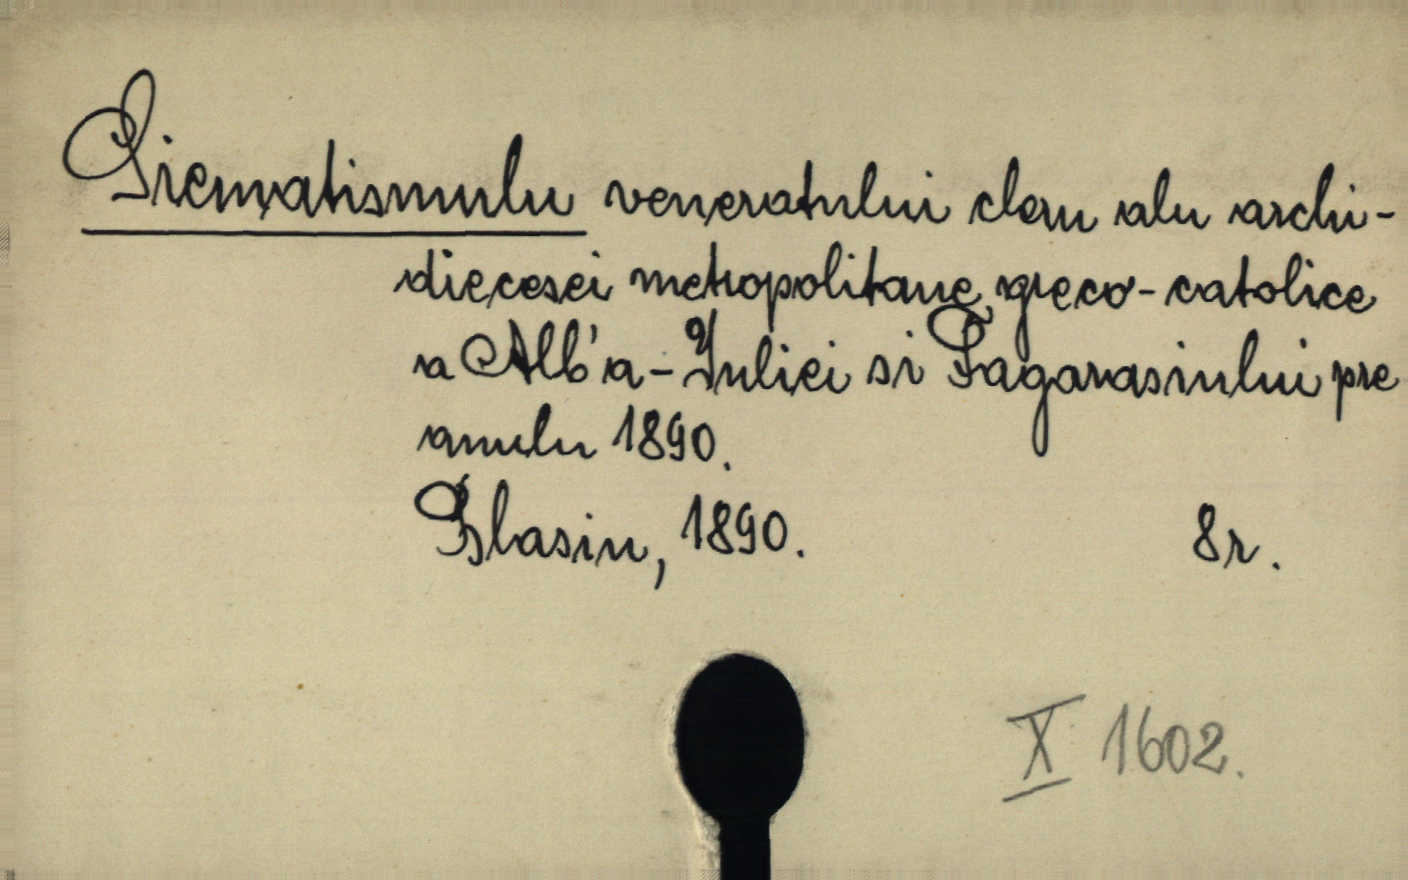 Siematismulu veneratului cleru alu archi-
diecesei metropolitane greco-catolice
a Alb'a-Iuliei si Fagarasiului pre
anulu 1890.
Blasiu, 1890. 8r.
X 1602.